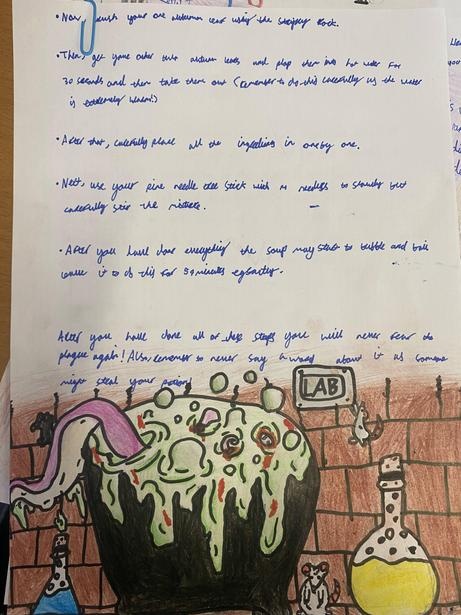 • Now, crush your one autumn leaf using the stripey Rock.
• Then, get your other two autumn leafs and plop them into hot water For
30 seconds and then take them out (Remember to do this carefully as the water
is extremely warm!)
• After that, carefully place all the ingredients in one by one.
• Next, use your pine needle tree stick with no needles to slowly but
carefully stir the mixture.
• After you have done everything the soup may start to bubble and boil
leave it to do this for minutes exactly.
After you have done all of these steps you will never fear the
plague again! Also, remember to never say a word about it as someone
might steal your potion!
LAB